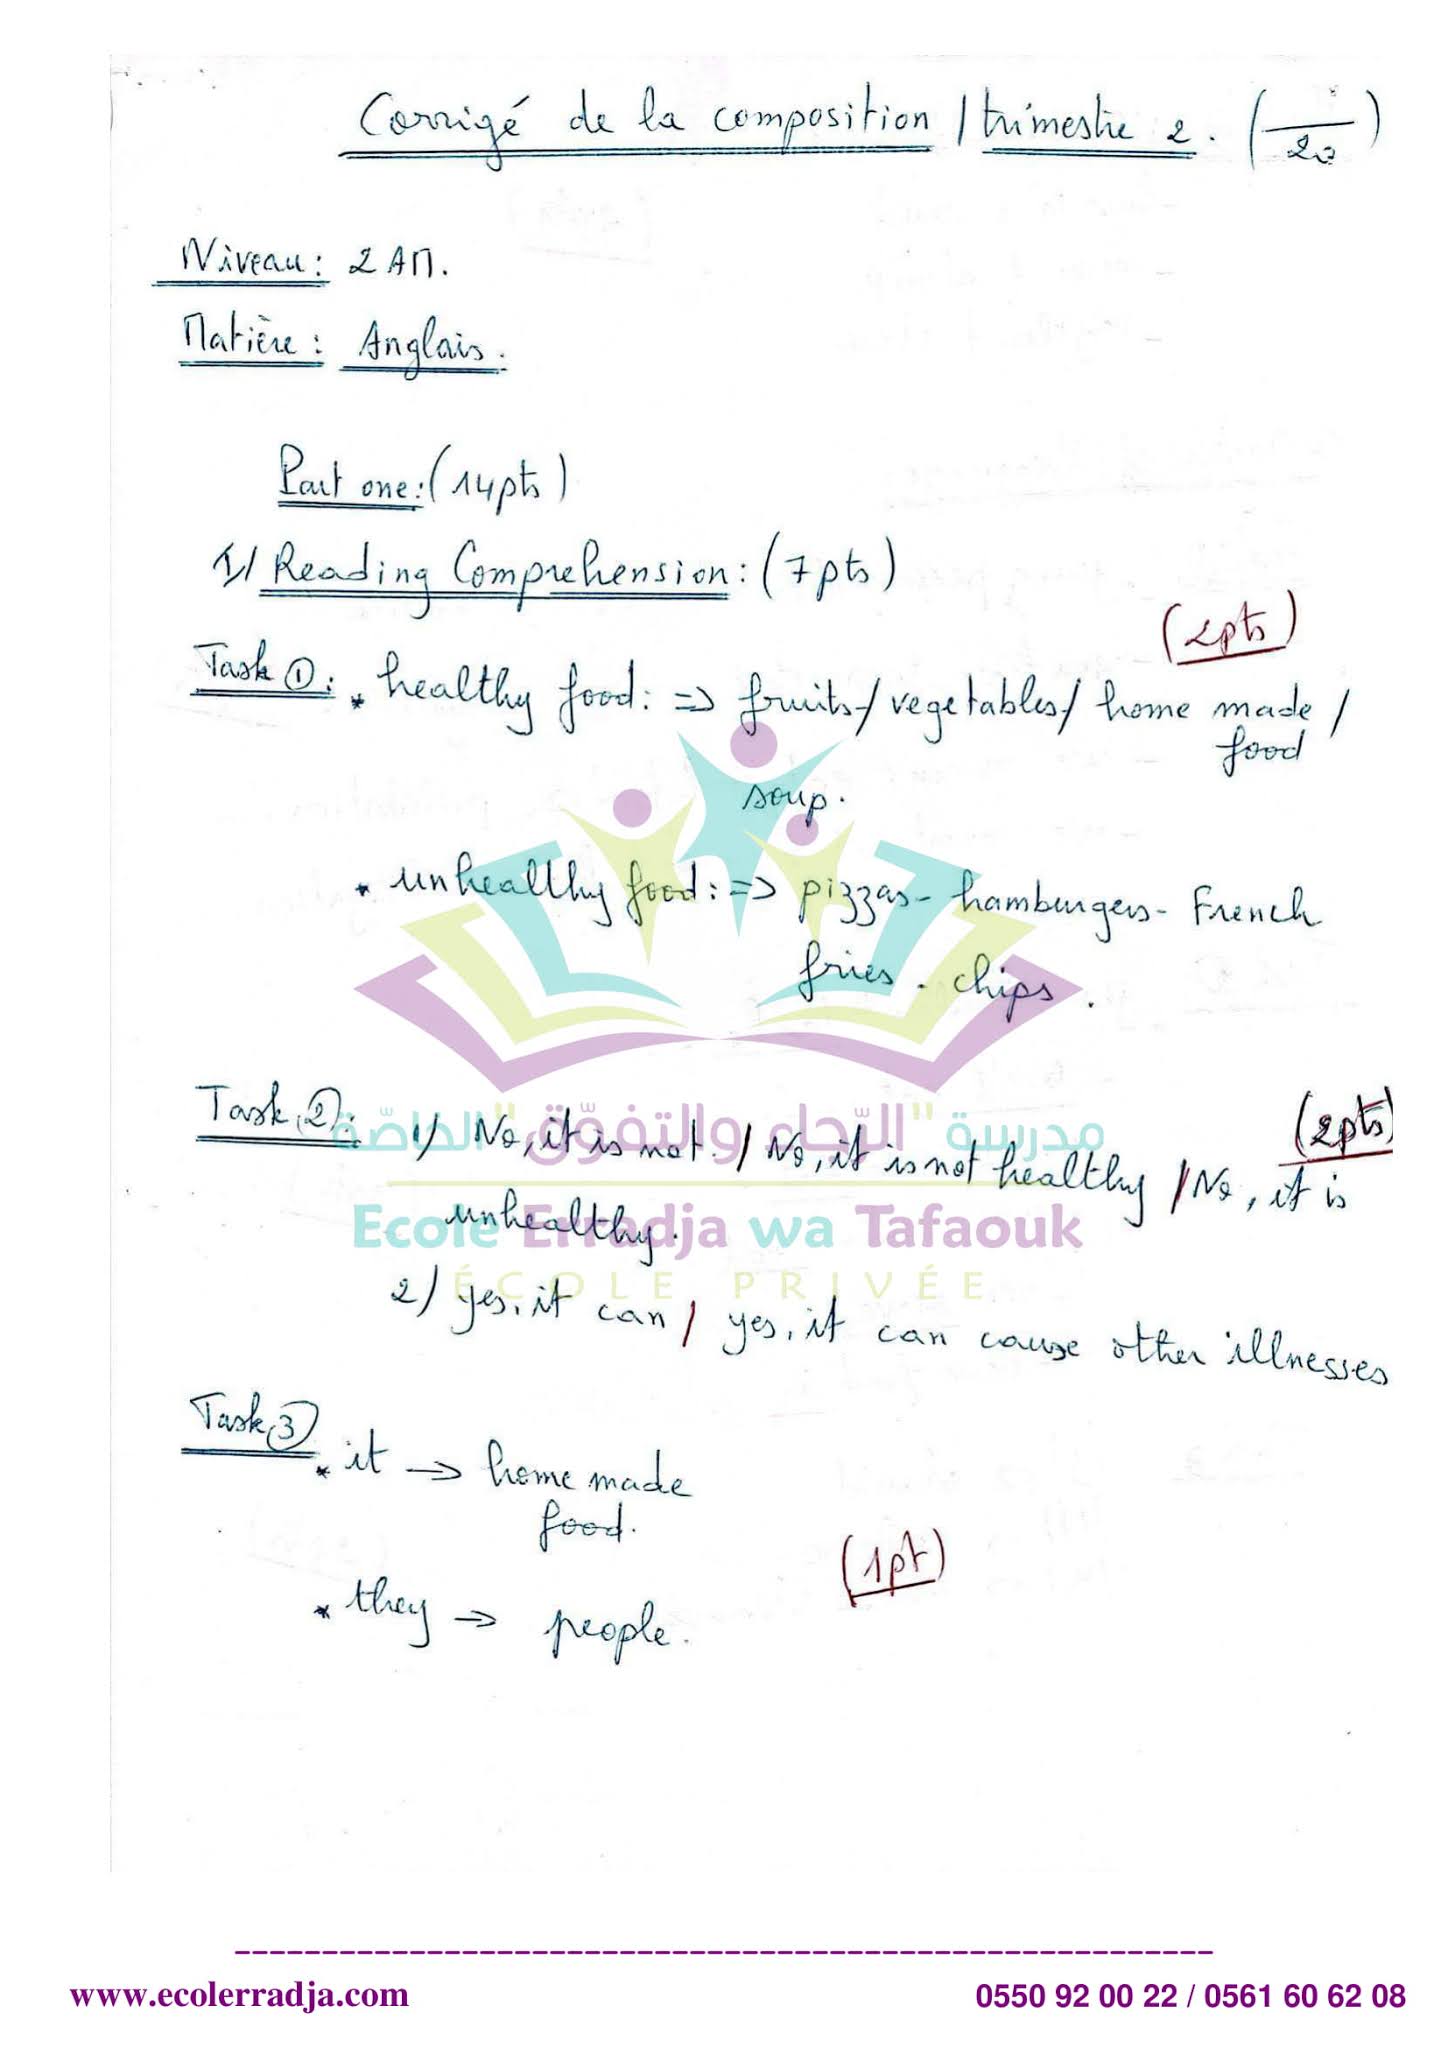 Corrigé de la composition / trimestre 2. ( /20)
Niveau: 2 AM.
Matière: Anglais.
Part one: (14pts)
1/ Reading Comprehension: (7pts)
(2pts)
Task ①: * healthy food: => fruits/ vegetables/ home made /
food
soup.
* unhealthy food: => pizzas - hamburgers - French
fries - chips.
Task ②: 1) No, it is not. / No, it is not healthy / No, it is
(2pts)
unhealthy.
2) yes, it can / yes, it can cause other illnesses
Task ③ * it → home made
food.
(1pt)
* they → people.
مدرسة "الرّجاء والتفوّق" الخاصّة
Ecole Erradja wa Tafaouk
ÉCOLE PRIVÉE
www.ecolerradja.com
0550 92 00 22 / 0561 60 62 08